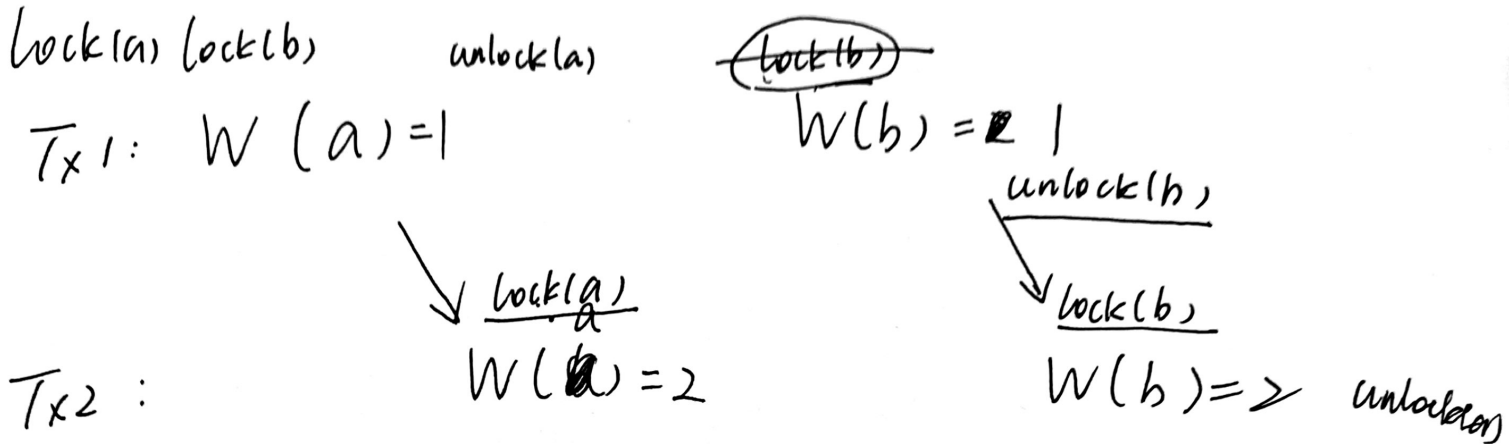 lock(a) lock(b) unlock(a) lock(b)
Tx1: W(a)=1 W(b)=1
unlock(b)
lock(a) lock(b)
a
Tx2: W( )=2 W(b)=2